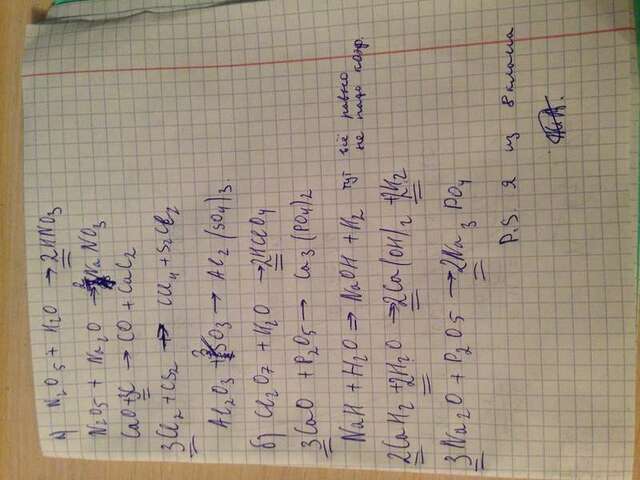 а) N2O5 + H2O → 2HNO3
N2O5 + Na2O → 2NaNO3
CaO + 3C → CO + CaC2
3Cl2 + CS2 → CCl4 + S2Cl2
Al2O3 + 3SO3 → Al2(SO4)3.
б) Cl2O7 + H2O → 2HClO4
3CaO + P2O5 → Ca3(PO4)2
NaH + H2O → NaOH + H2 тут всё равно не надо коэф.
2CaH2 + 2H2O → 2Ca(OH)2 + 2H2
3Na2O + P2O5 → 2Na3PO4
P.S. Я из 8 класса